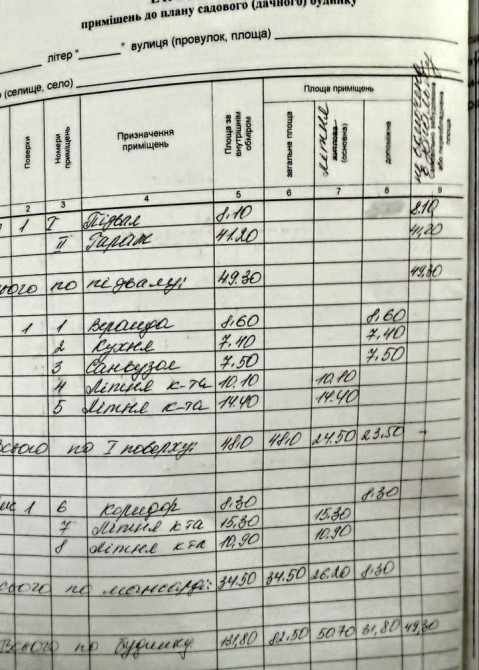 приміщень до плану садового (дачного) будинку
літер "____" вулиця (провулок, площа)
(селище, село)
Поверхи Номери приміщень Призначення приміщень Площа за внутрішнім обміром Площа приміщень
загальна площа літня житлова (основна) допоміжна або переобладнана площа
2 3 4 5 6 7 8 9
1 I Підвал 8.10 8.10
II Гараж 41.20 41.20
по підвалу: 49.30 49.30
1 1 Веранда 8,60 8,60
2 Кухня 7,40 7.40
3 Санвузол 7,50 7,50
4 Літня к-та 10.10 10.10
5 Літня к-та 14.40 14.40
Всього по I поверху: 48.0 48.0 24.50 23.50 -
1 6 Коридор 8.30 8.30
7 Літня к-та 15.30 15.30
8 Літня к-та 10,90 10.90
по мансарді: 34.50 34.50 26.20 8.30
Всього по будинку 131,80 82.50 50.70 31,80 49,30